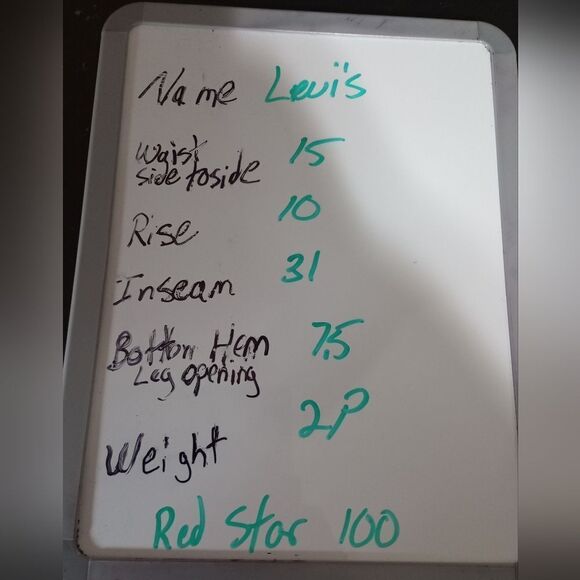 Name Levi's
Waist 15
side to side
Rise 10
Inseam 31
Bottom Hem 7.5
Leg opening
Weight 2P
Red Star 100